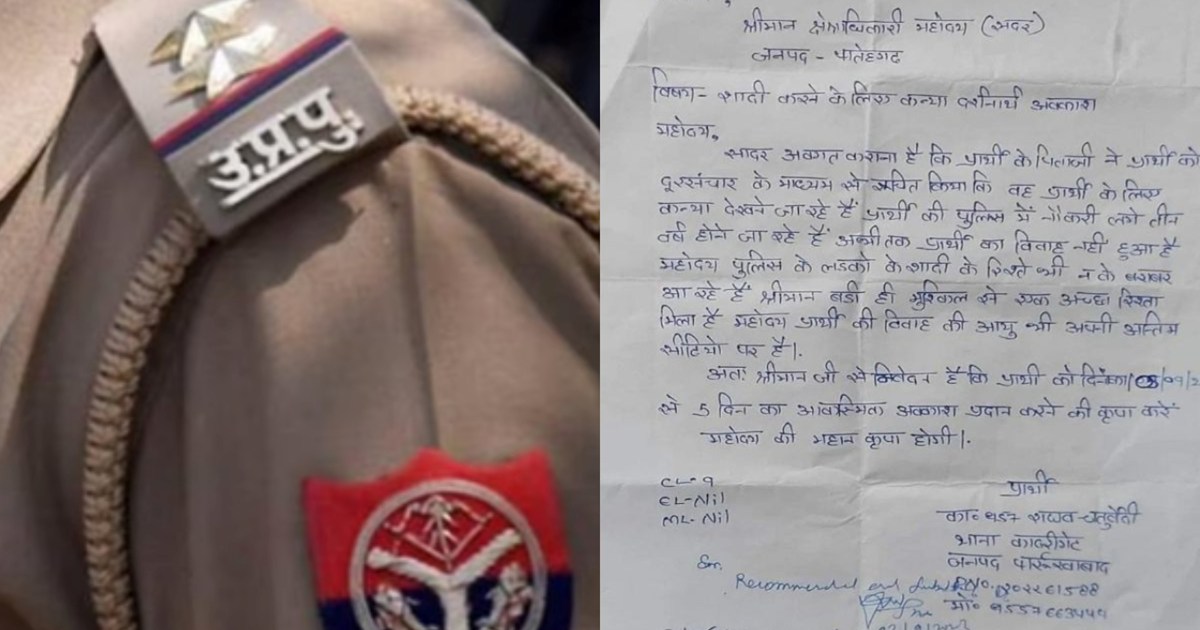 उ.प्र.पु.
श्रीमान क्षेत्राधिकारी महोदय (सदर)
जनपद - फतेहगढ
विषय - शादी करने के लिए कन्या दर्शनार्थ अवकाश
महोदय,
सादर अवगत कराना है कि प्रार्थी के पिताजी ने प्रार्थी को
दूरसंचार के माध्यम से सूचित किया कि वह प्रार्थी के लिए
कन्या देखने जा रहे हैं प्रार्थी की पुलिस में नौकरी लगे तीन
वर्ष होने जा रहे हैं अभी तक प्रार्थी का विवाह नहीं हुआ है
महोदय पुलिस के लडको के शादी के रिश्ते भी न के बराबर
आ रहे हैं श्रीमान बडी ही मुश्किल से एक अच्छा रिश्ता
मिला है महोदय प्रार्थी की विवाह की आयु भी अपनी अन्तिम
सीढियो पर है।
अतः श्रीमान जी से निवेदन है कि प्रार्थी को दिनांक
से 5 दिन का आकस्मिक अवकाश प्रदान करने की कृपा करें
महोदय की महान कृपा होगी।
CL-9
EL-Nil
ML-Nil
प्रार्थी
का० 957 राघव चतुर्वेदी
थाना कादरीगेट
जनपद फर्रूखाबाद
Sir,
Recommended and
मो०